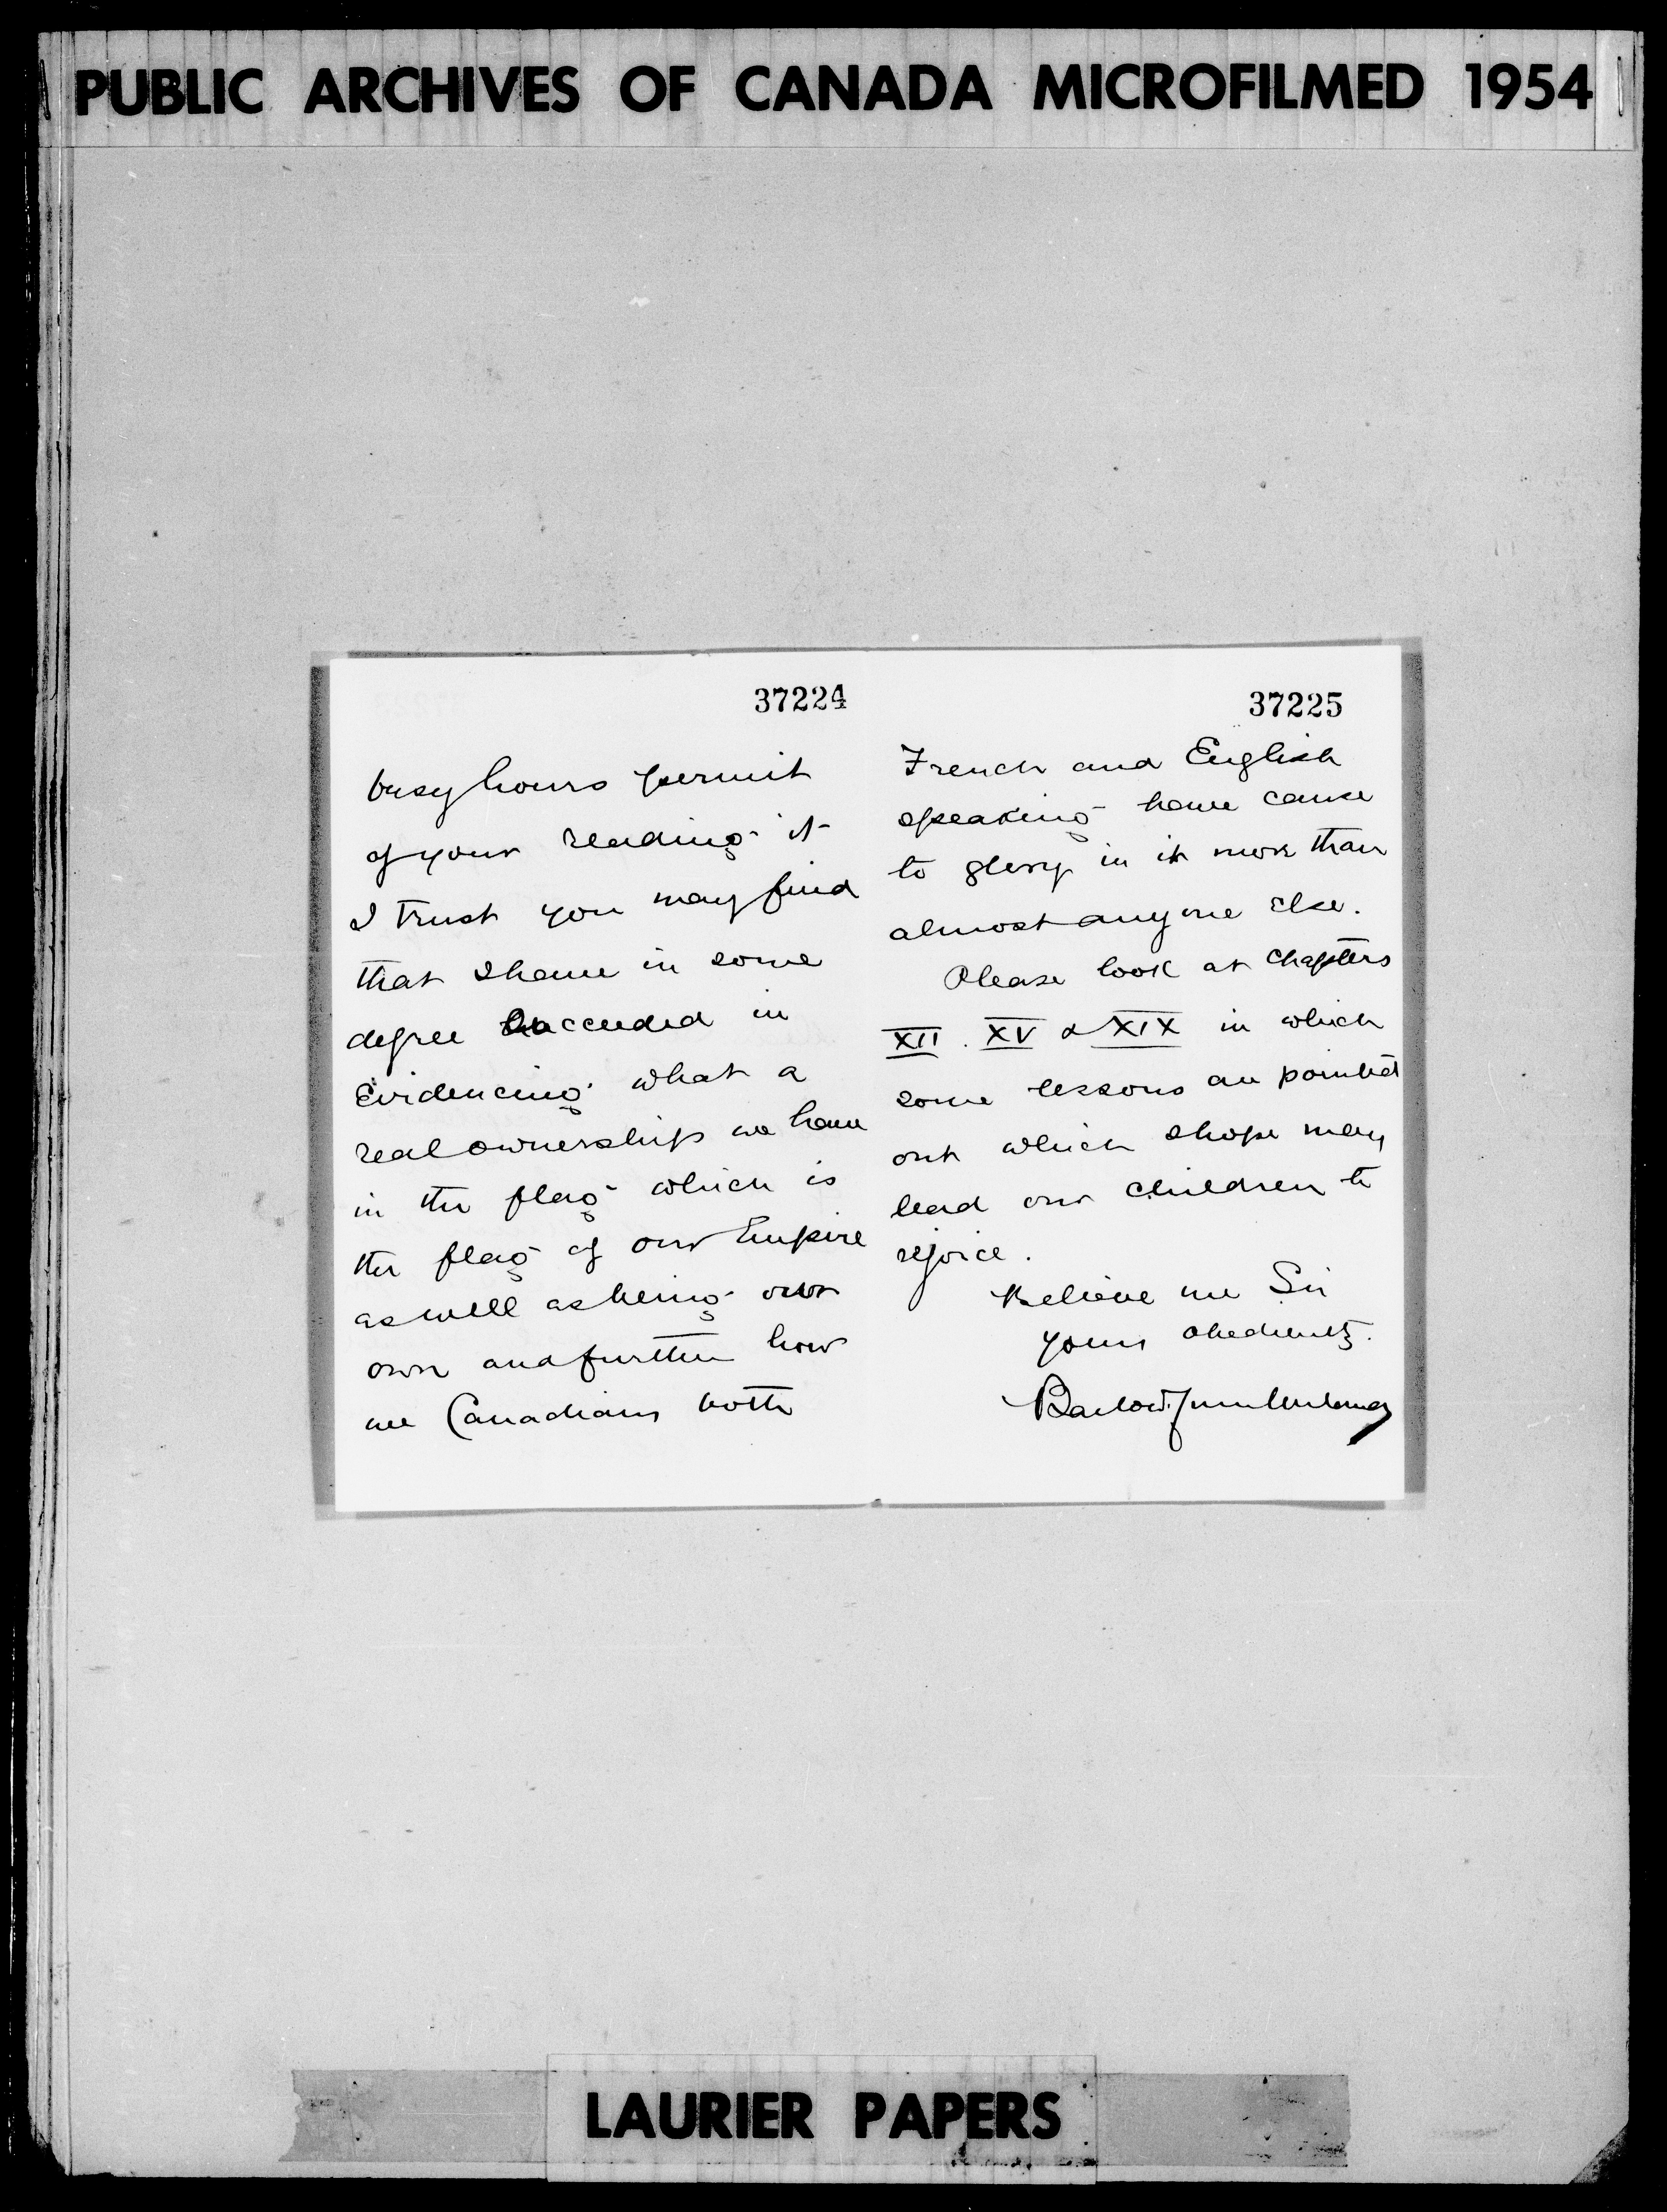 PUBLIC ARCHIVES OF CANADA MICROFILMED 1954
37224
busy hours permit
of your reading it
I trust you may find
that I have in some
degree succeeded in
evidencing what a
real ownership we have
in the flag which is
the flag of our Empire
as well as being our
own and further how
we Canadians both
37225
French and English
speaking have cause
to glory in it more than
almost anyone else.
Please look at Chapters
XII. XV & XIX in which
some lessons are pointed
out which I hope may
lead our children to
rejoice.
Believe me Sir
yours obediently.
Barlow
LAURIER PAPERS